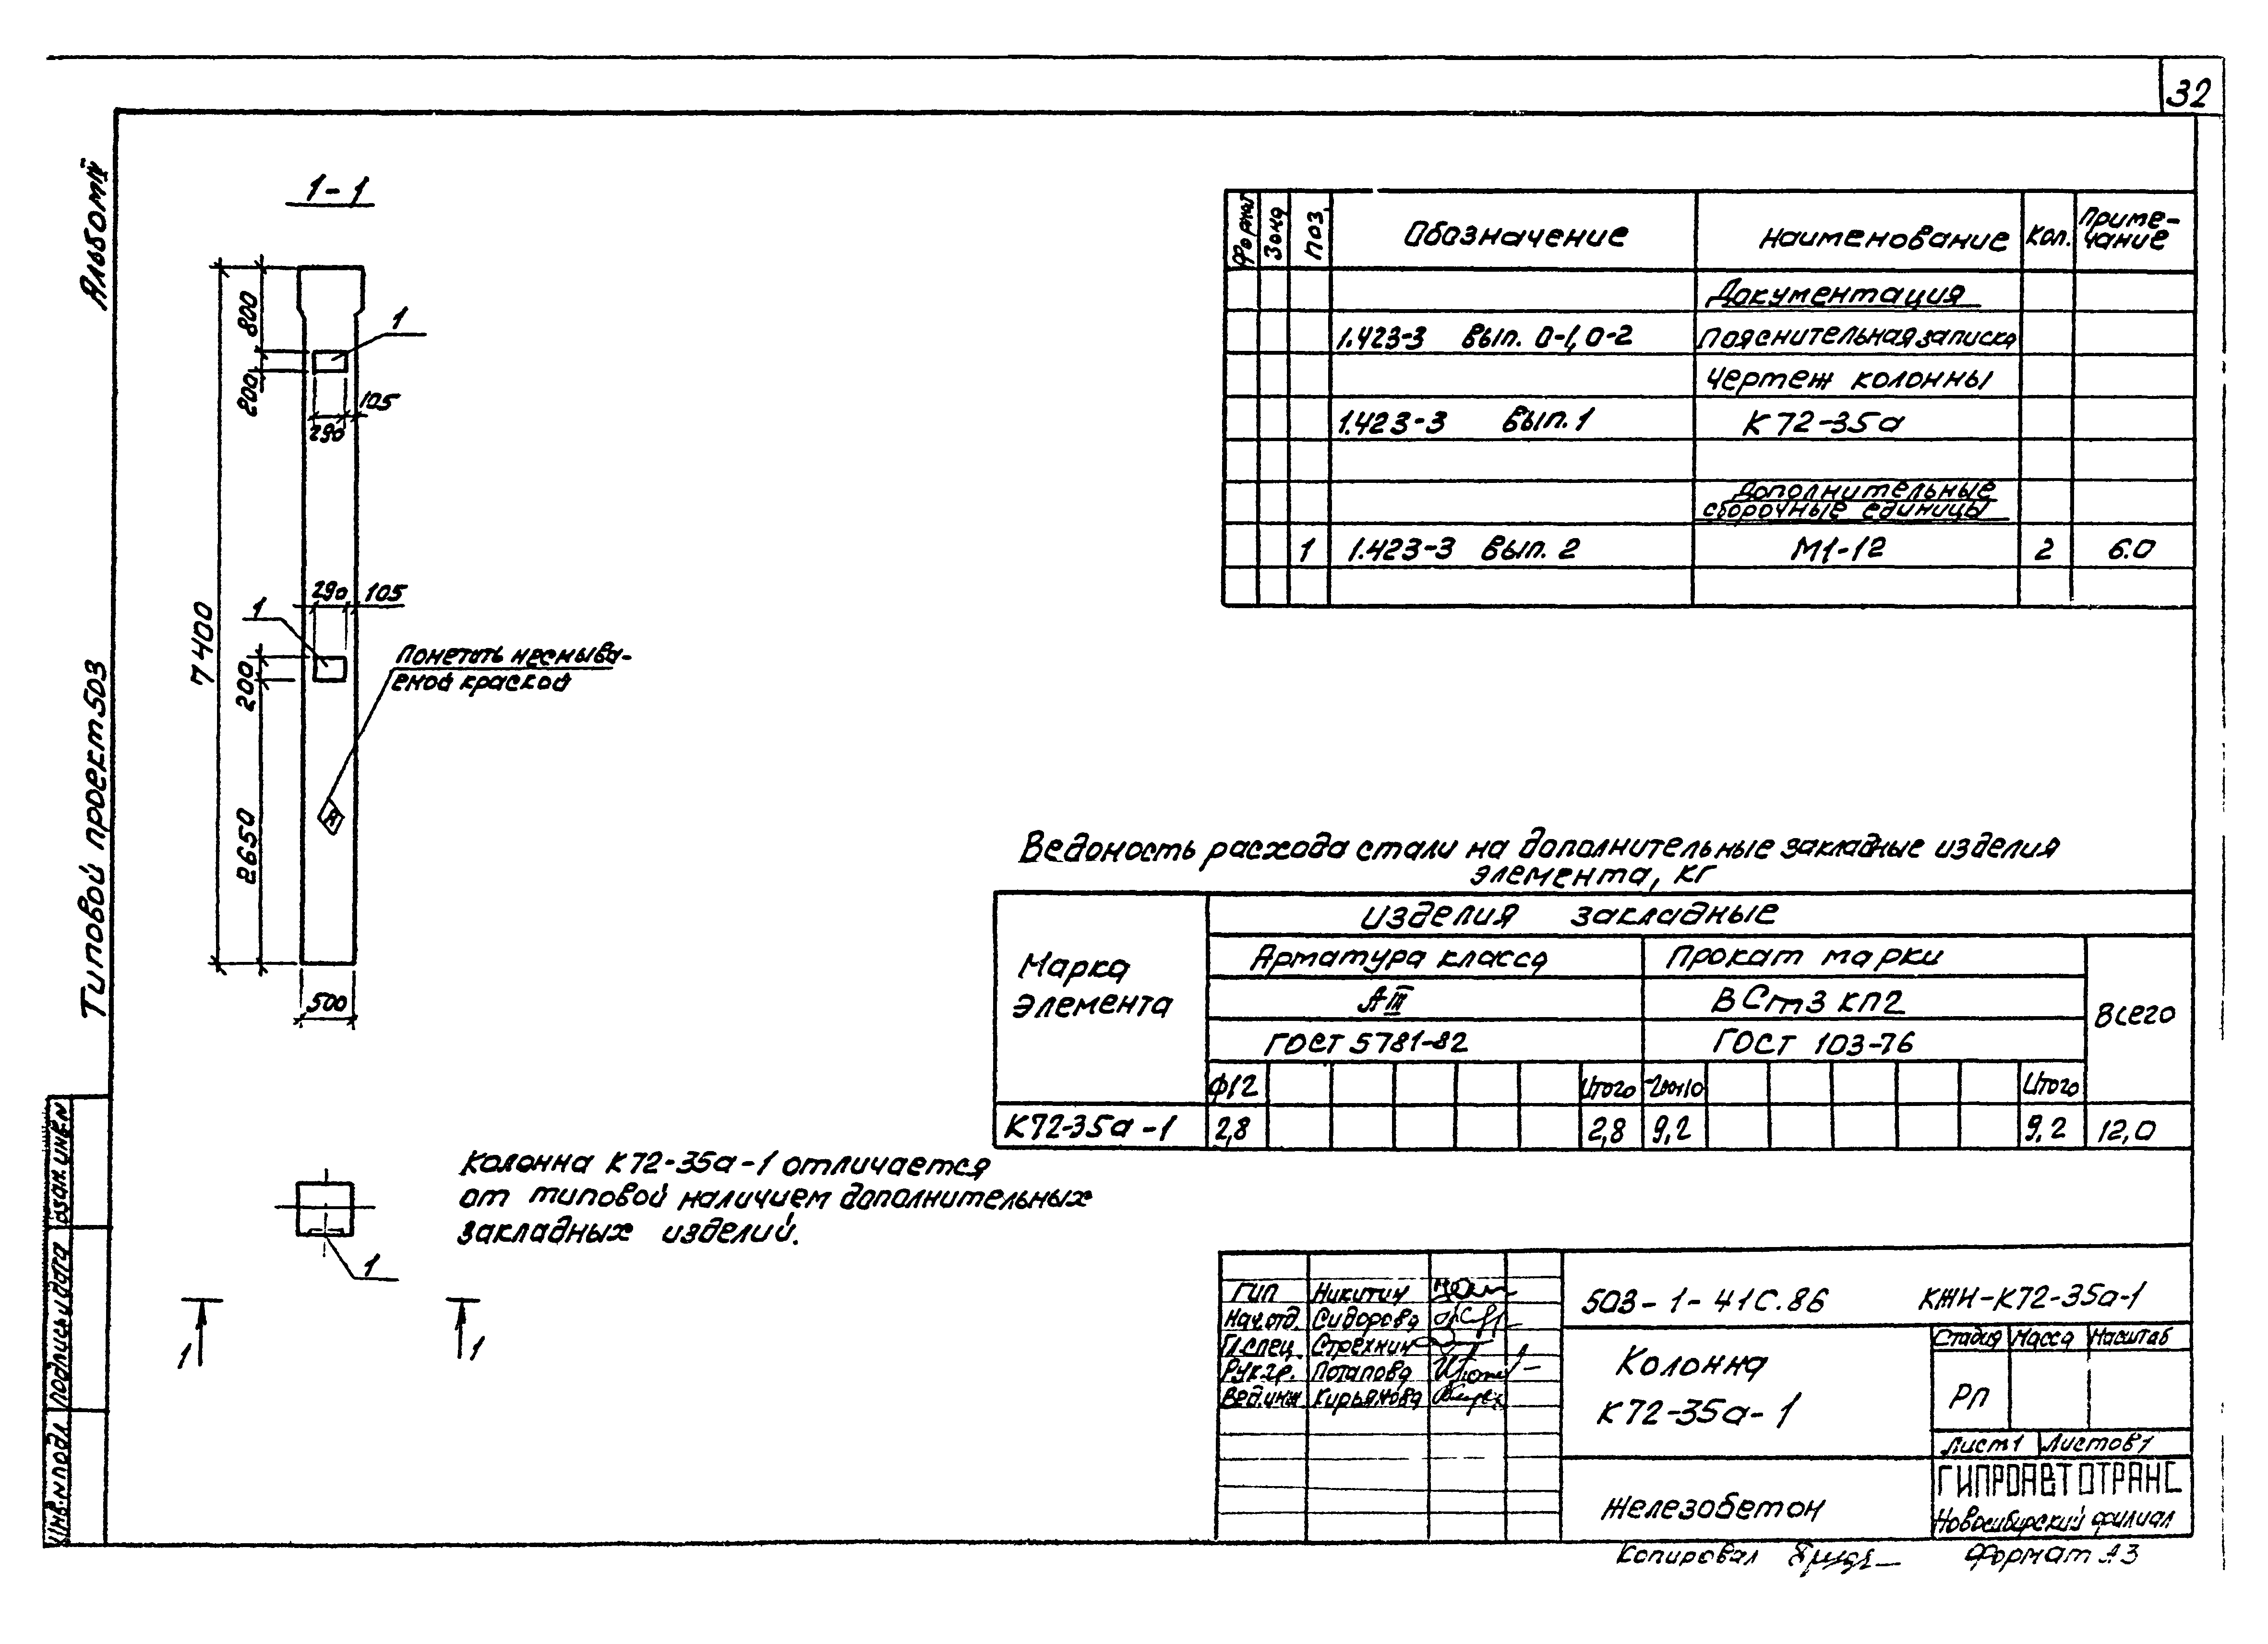 32
Альбом IV
Типовой проект 503
1-1
800
200
1
105
290
7400
290 105
1
200
Пометить несмыва-
емой краской
2650
500
Формат Зона Поз. Обозначение Наименование Кол. Приме-
чание
Документация
1.423-3 Вып. 0-1, 0-2 Пояснительная записка
Чертеж колонны
1.423-3 Вып. 1 К72-35а
Дополнительные
сборочные единицы
1 1.423-3 Вып. 2 М1-12 2 6.0
Ведомость расхода стали на дополнительные закладные изделия
элемента, кг
Марка
элемента
Изделия закладные
Арматура класса Прокат марки
АIII ВСт3кп2 Всего
ГОСТ 5781-82 ГОСТ 103-76
ф12 Итого Итого
К72-35а-1 2,8 2,8 9,2 9,2 12,0
Колонна К72-35а-1 отличается
от типовой наличием дополнительных
закладных изделий.
1
1 1
Взам. инв. N
Подпись и дата
Инв. N подл
ГИП Никитин
Нач.отд. Сидорова
Гл.спец. Стрехнин
Рук.гр. Потапова
Вед.инж. Кирьянова
503-1-41С.86 КЖИ-К72-35а-1
Колонна
К72-35а-1
Стадия Масса Масштаб
РП
Лист 1 Листов 1
Железобетон
ГИПРОАВТОТРАНС
Новосибирский филиал
Копировал Формат А3